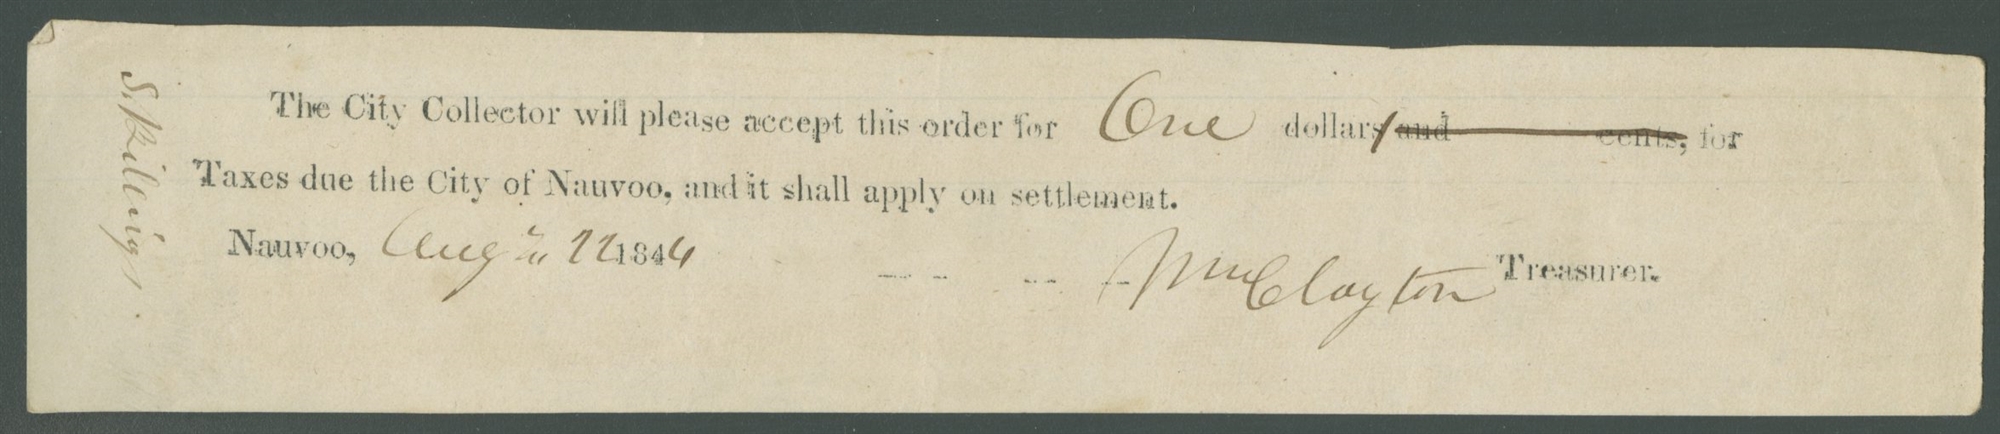 The City Collector will please accept this order for One dollars and cents, for
Taxes due the City of Nauvoo, and it shall apply on settlement.
Nauvoo, Aug 22 1844 Wm Clayton Treasurer.